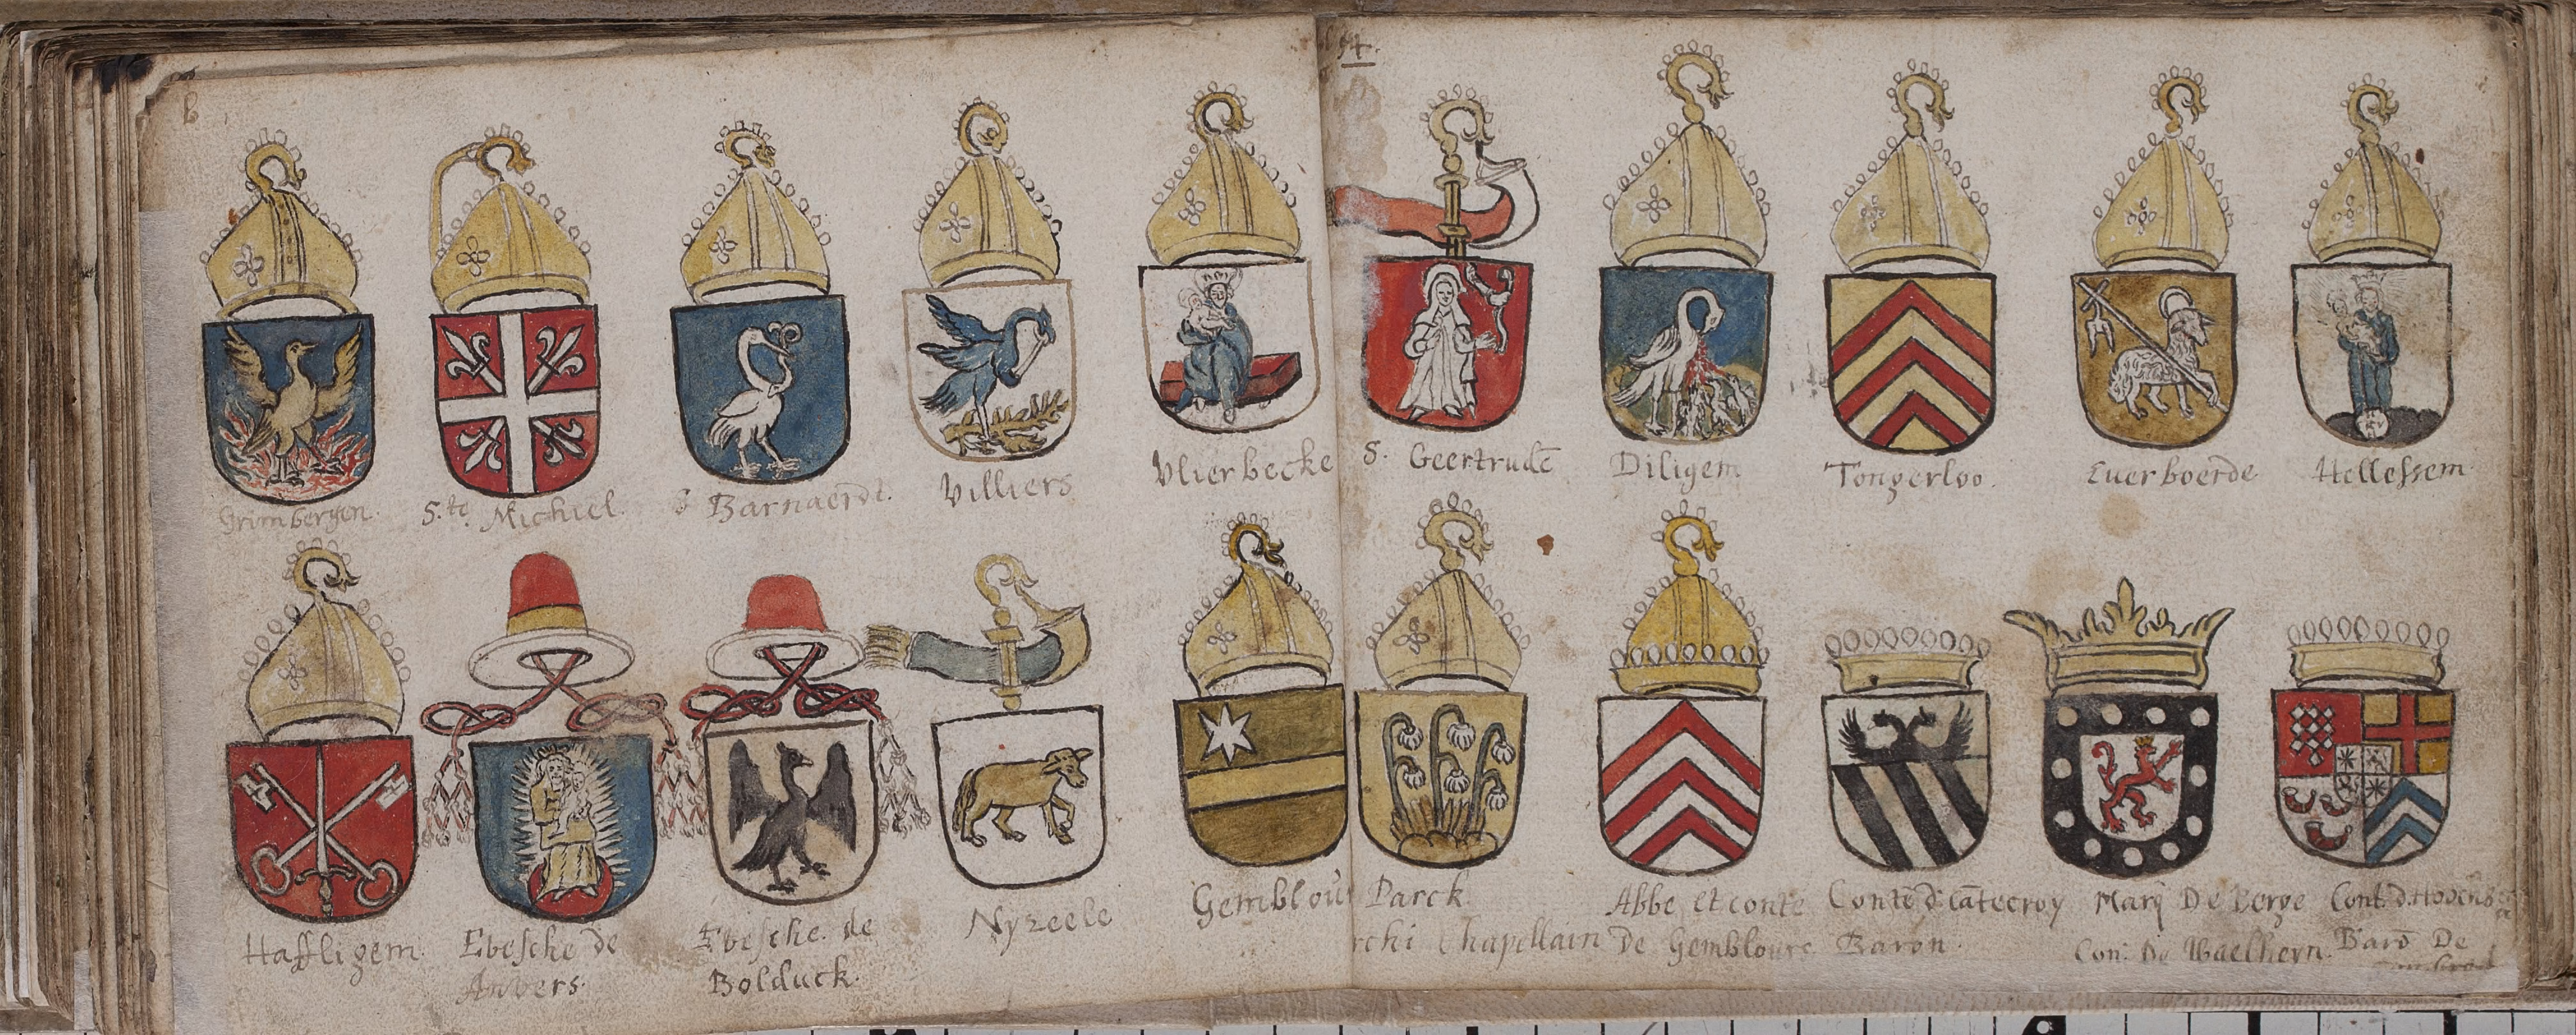 54.
Grimbergen.
S.te Michiel.
S Barnaerdt.
Villiers
Vlierbecke
S. Geertrude
Diligem
Tongerloo.
Euerboerde
Hellessem
Haffligem.
Ebesche de
Anvers.
Ebesche. de
Bolduck.
Nyzeele
Gemblou
Parck.
rchi Chapellain
Abbe et conte
De Gembloure
Conte d: Cateeroy
Baron.
Marq De Berge
Con: De Waelhem.
Cont. d.
Baro De